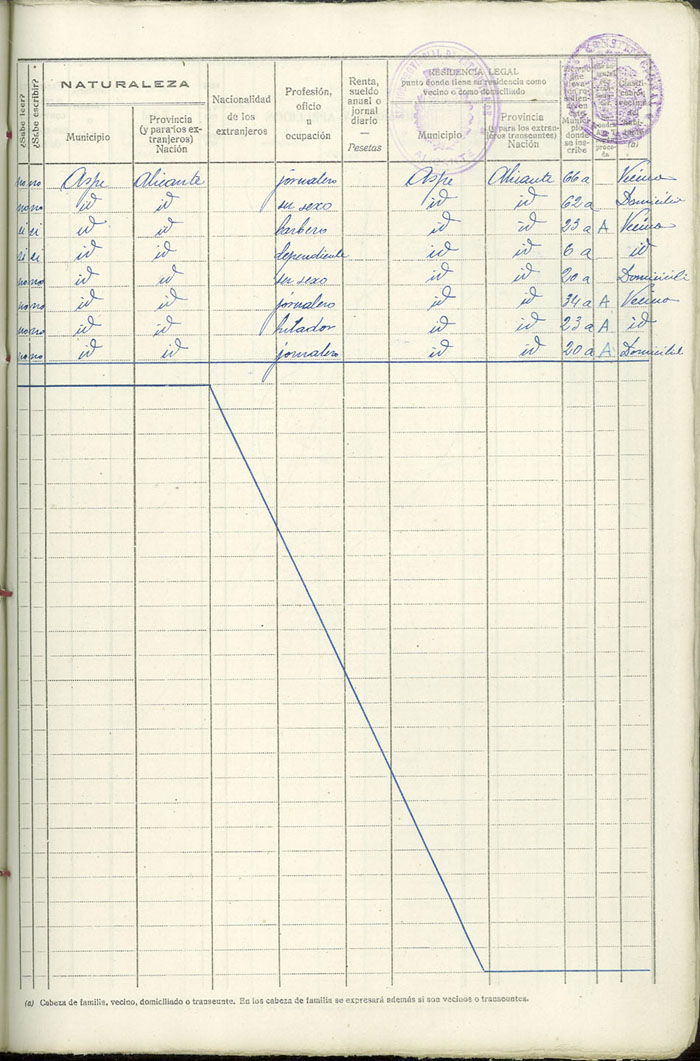 ¿Sabe leer?
¿Sabe escribir?
NATURALEZA
Municipio
Provincia
(y para los ex-
tranjeros)
Nación
Nacionalidad
de los
extranjeros
Profesión,
oficio
u
ocupación
Renta,
sueldo
anual o
jornal
diario
—
Pesetas
RESIDENCIA LEGAL
punto donde tiene su residencia como
vecino o como domiciliado
Municipio
Provincia
(y para los extran-
jeros transeuntes)
Nación
(a)
no no Aspe Alicante jornalero Aspe Alicante 66 a Vecino
no no id id su sexo id id 62 a
si si id id barbero id id 23 a A Vecino
si si id id dependiente id id 6 a id
no no id id su sexo id id 20 a
no no id id jornalero id id 34 a A Vecino
no no id id hilador id id 23 a A id
no no id id jornalero id id 20 a A
(a) Cabeza de familia, vecino, domiciliado o transeunte. En los cabeza de familia se expresará además si son vecinos o transeuntes.